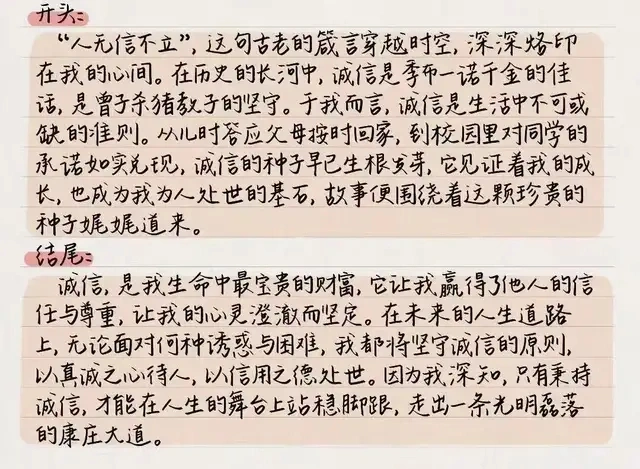 开头:
“人无信不立”，这句古老的箴言穿越时空，深深烙印
在我的心间。在历史的长河中，诚信是季布一诺千金的佳
话，是曾子杀猪教子的坚守。于我而言，诚信是生活中不可或
缺的准则。从儿时答应父母按时回家，到校园里对同学的
承诺如实兑现，诚信的种子早已生根发芽，它见证着我的成
长，也成为我为人处世的基石，故事便围绕着这颗珍贵的
种子娓娓道来。
结尾:
诚信，是我生命中最宝贵的财富，它让我赢得了他人的信
任与尊重，让我的心灵澄澈而坚定。在未来的人生道路
上，无论面对何种诱惑与困难，我都将坚守诚信的原则，
以真诚之心待人，以信用之德处世。因为我深知，只有秉持
诚信，才能在人生的舞台上站稳脚跟，走出一条光明磊落
的康庄大道。